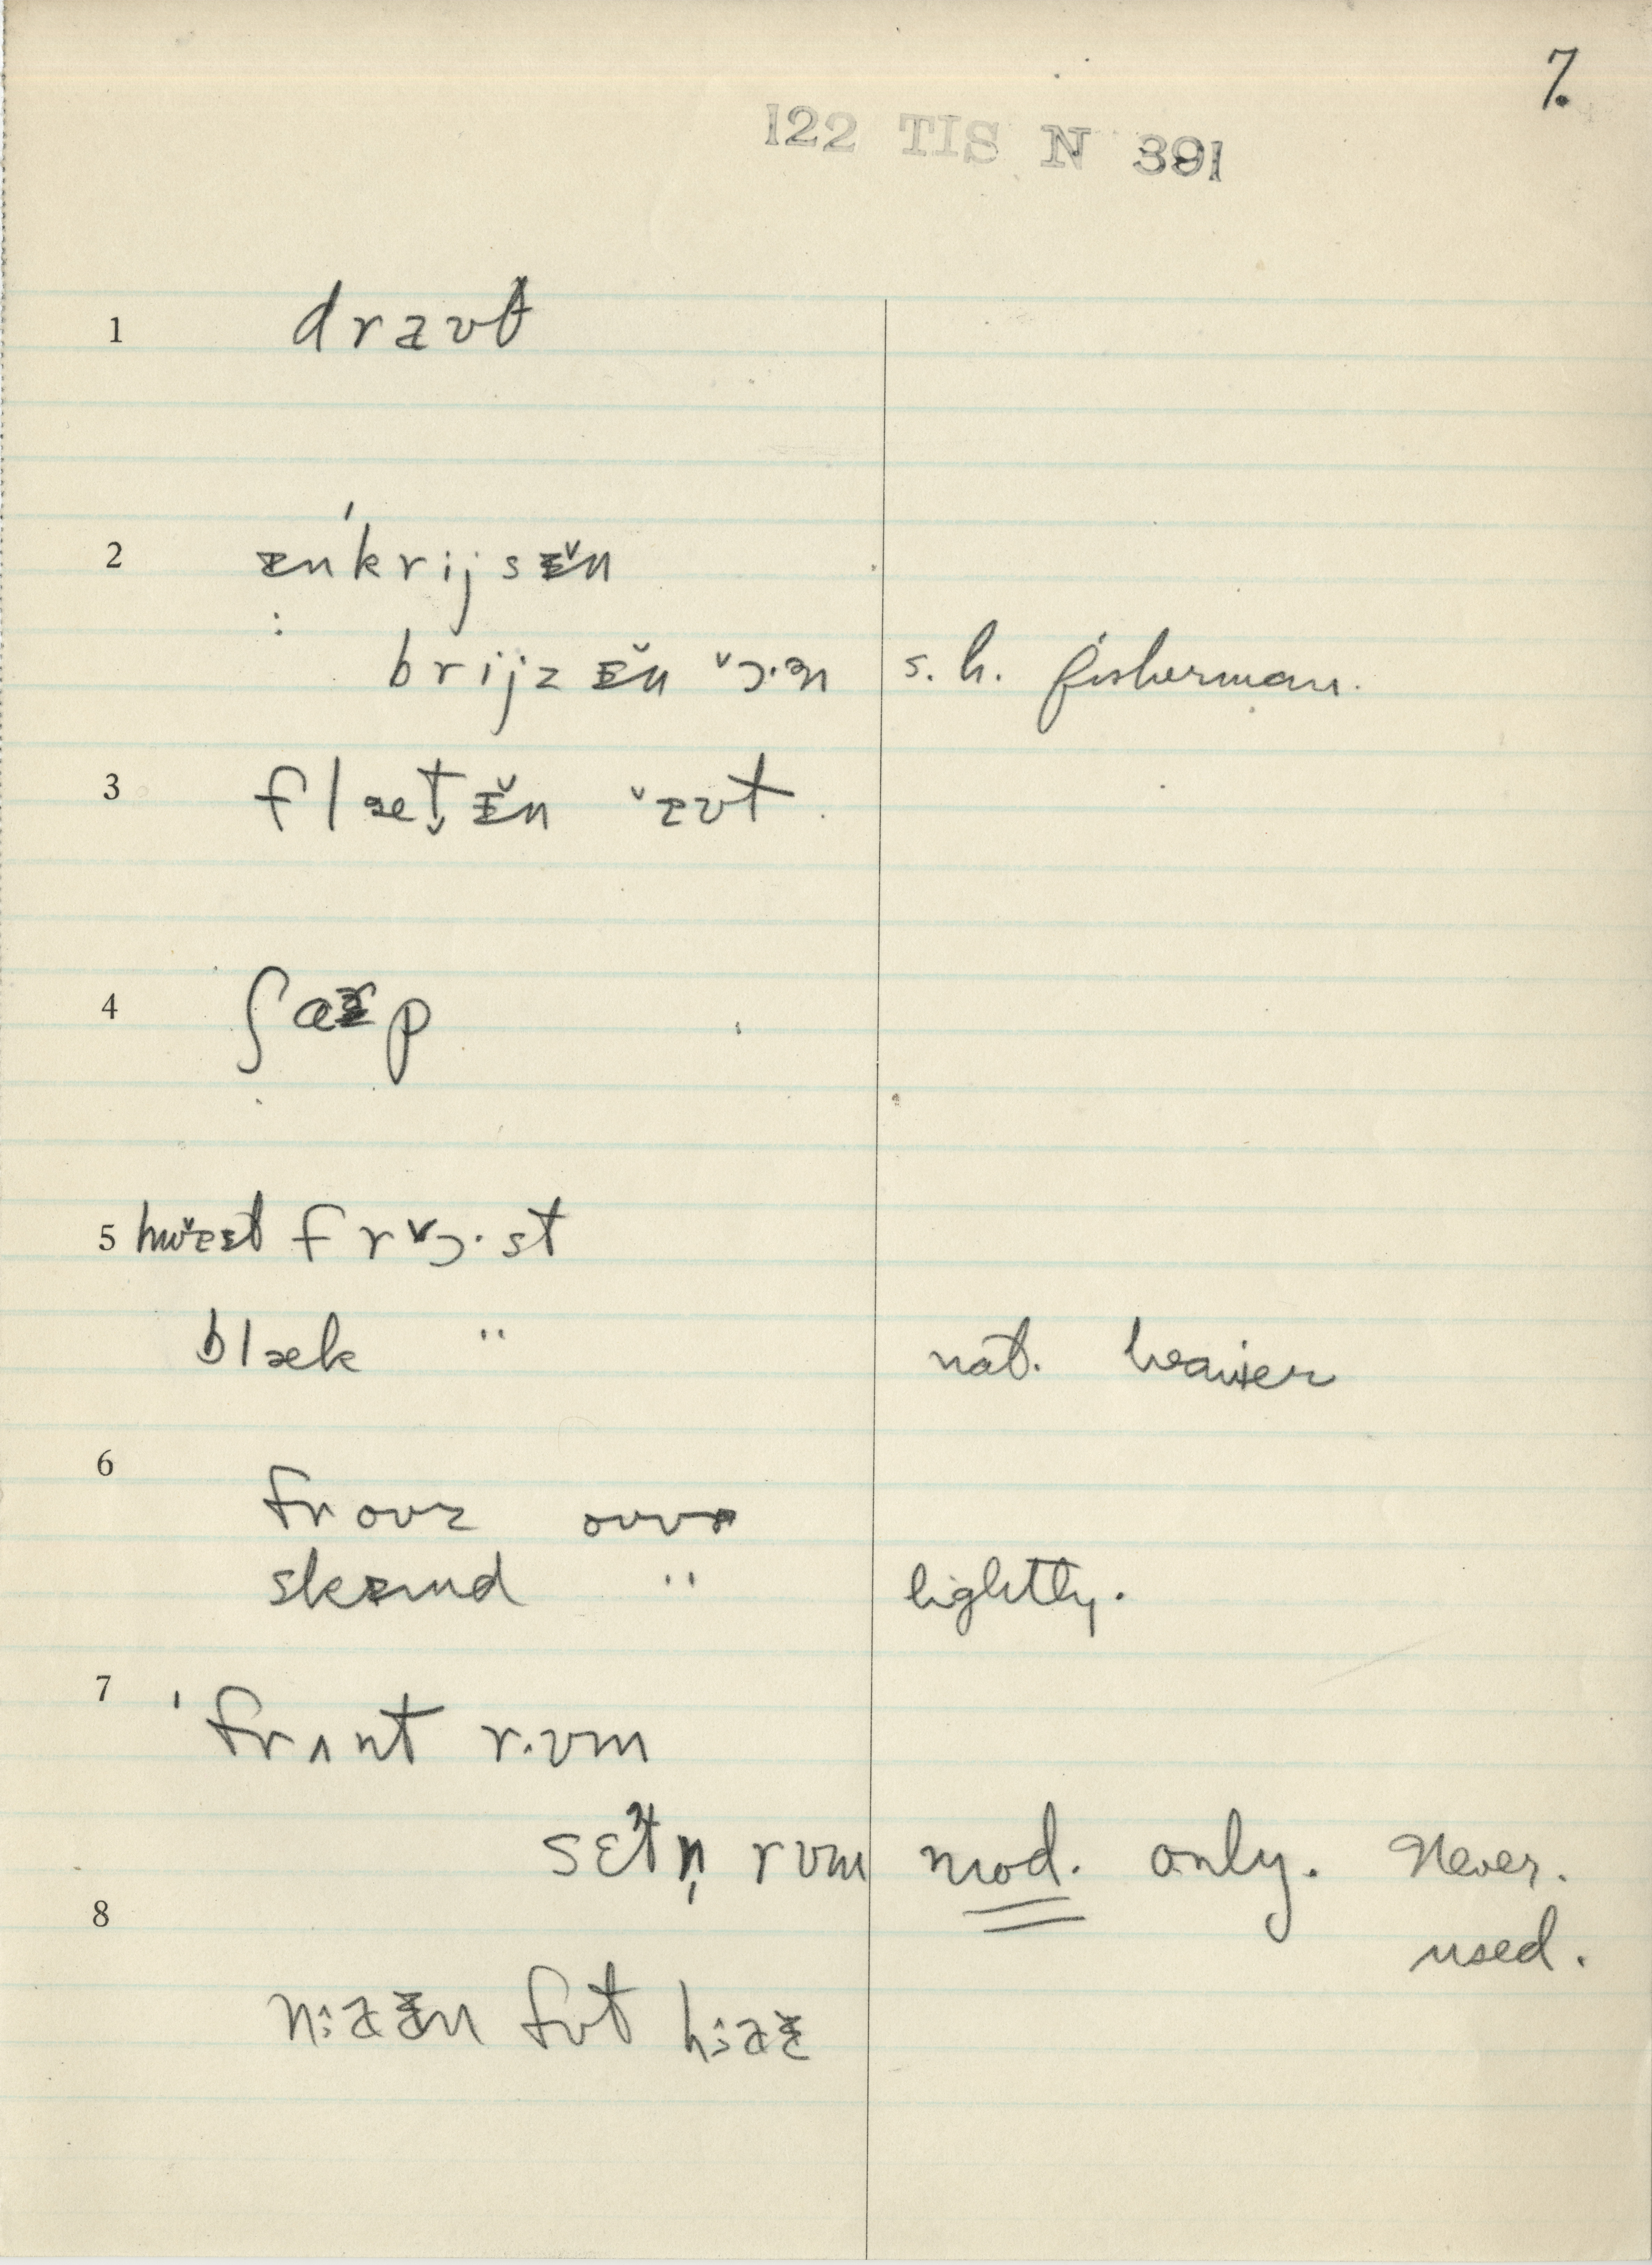 7.
122 TIS N 391
1 draʊt
2 ɪnˈkrijsɪ̆n
brijzɪ̆n ɔ·n s. h. fisherman.
3 flæt̬ɪ̆n aʊt
4 ʃaɚp
5 hwaɪt frɔ·st
blæk " nat. heavier
6 froʊz oʊvɚ
skɪmd " lightly.
7 ˈfrʌnt r·ʊm
sɛtn̩ rʊm mod. only. Never.
used.
8
fʊt